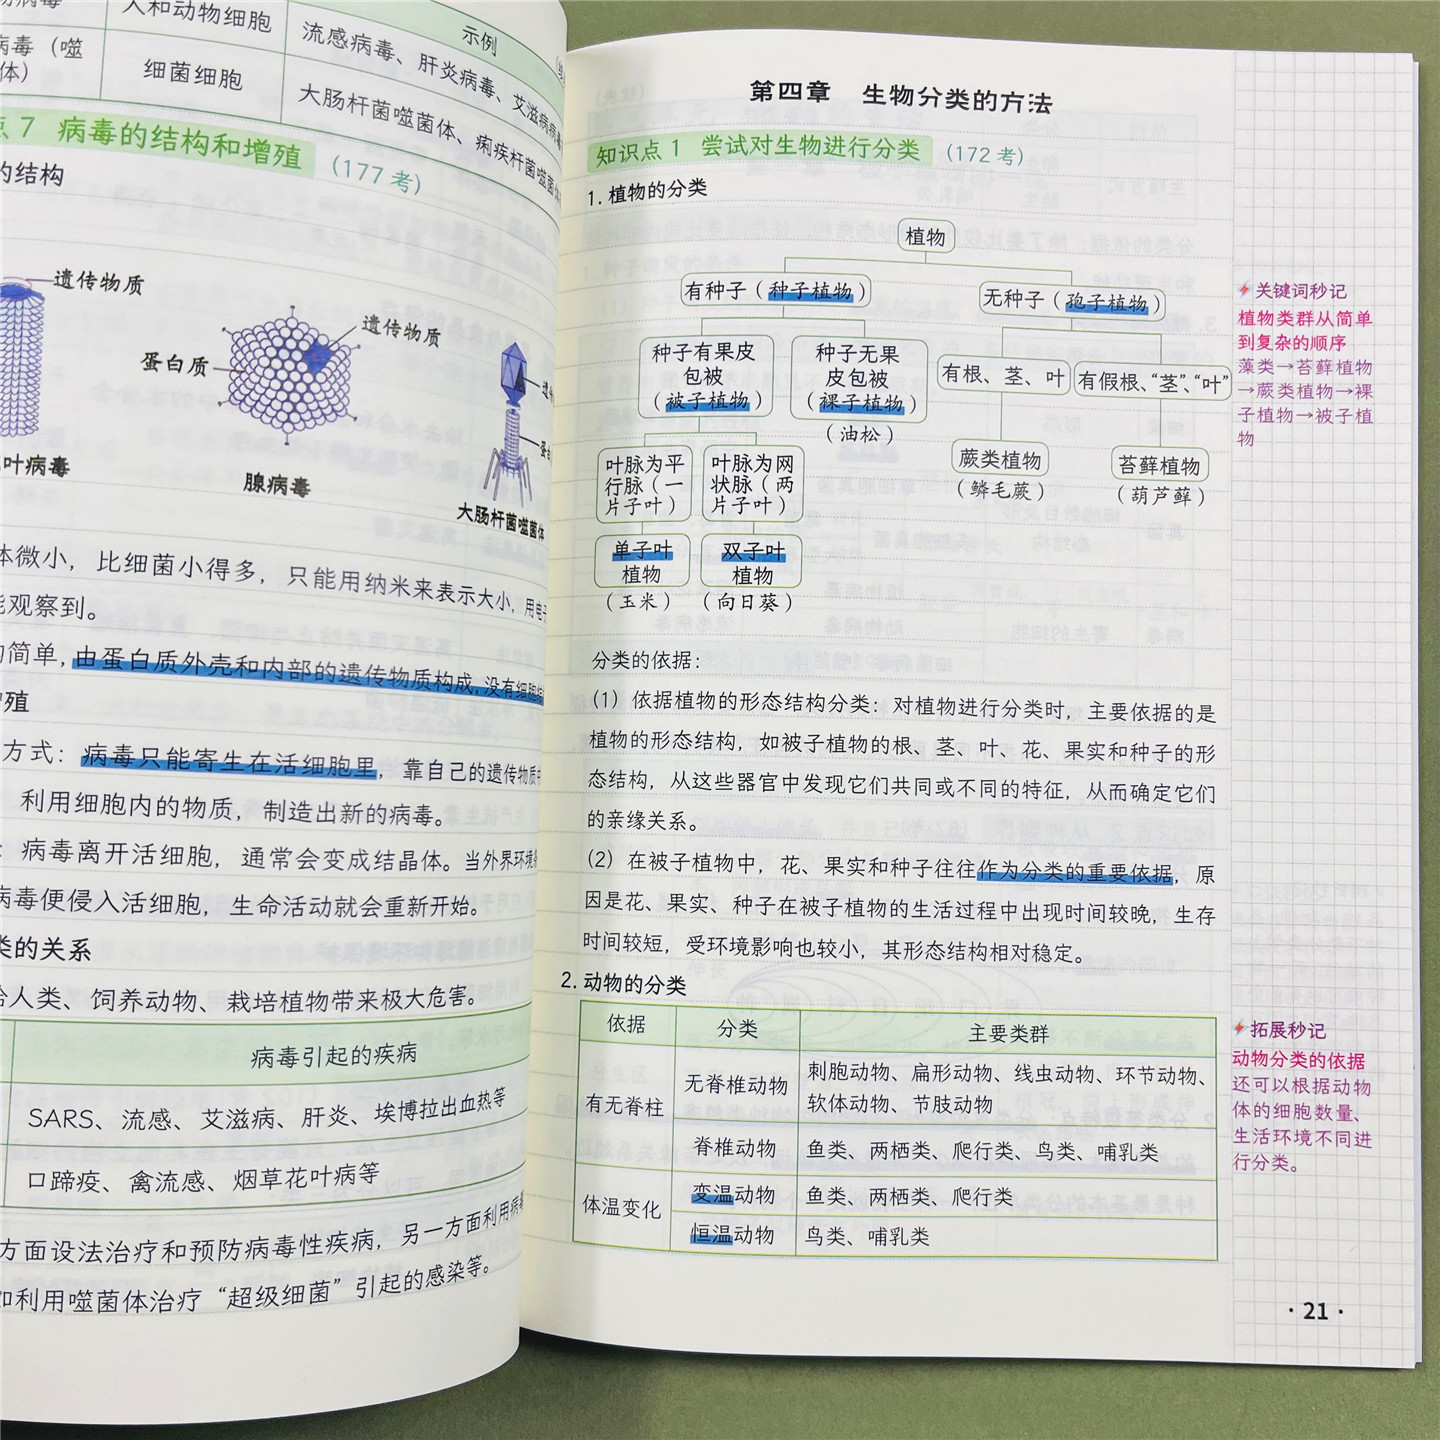 人和动物细胞
示例
流感病毒、肝炎病毒、艾滋病病毒
病毒（噬
体）
细菌细胞
大肠杆菌噬菌体、痢疾杆菌噬菌体
点7 病毒的结构和增殖（177考）
的结构
遗传物质
蛋白质
遗传物质
叶病毒
腺病毒
大肠杆菌噬菌体
体微小，比细菌小得多，只能用纳米来表示大小，用电子
能观察到。
构简单，由蛋白质外壳和内部的遗传物质构成，没有细胞结构
增殖
方式：病毒只能寄生在活细胞里，靠自己的遗传物质中
利用细胞内的物质，制造出新的病毒。
：病毒离开活细胞，通常会变成结晶体。当外界环境条
病毒便侵入活细胞，生命活动就会重新开始。
类的关系
给人类、饲养动物、栽培植物带来极大危害。
病毒引起的疾病
SARS、流感、艾滋病、肝炎、埃博拉出血热等
口蹄疫、禽流感、烟草花叶病等
方面设法治疗和预防病毒性疾病，另一方面利用病毒
如利用噬菌体治疗“超级细菌”引起的感染等。
第四章 生物分类的方法
知识点1 尝试对生物进行分类（172考）
1. 植物的分类
植物
有种子（种子植物）
无种子（孢子植物）
种子有果皮
包被
（被子植物）
种子无果
皮包被
（裸子植物）
（油松）
有根、茎、叶
有假根、“茎”、“叶”
叶脉为平
行脉（一
片子叶）
叶脉为网
状脉（两
片子叶）
蕨类植物
（鳞毛蕨）
苔藓植物
（葫芦藓）
单子叶
植物
（玉米）
双子叶
植物
（向日葵）
分类的依据：
（1）依据植物的形态结构分类：对植物进行分类时，主要依据的是
植物的形态结构，如被子植物的根、茎、叶、花、果实和种子的形
态结构，从这些器官中发现它们共同或不同的特征，从而确定它们
的亲缘关系。
（2）在被子植物中，花、果实和种子往往作为分类的重要依据，原
因是花、果实、种子在被子植物的生活过程中出现时间较晚，生存
时间较短，受环境影响也较小，其形态结构相对稳定。
2. 动物的分类
依据 分类 主要类群
有无脊柱
无脊椎动物
刺胞动物、扁形动物、线虫动物、环节动物、
软体动物、节肢动物
脊椎动物 鱼类、两栖类、爬行类、鸟类、哺乳类
体温变化
变温动物 鱼类、两栖类、爬行类
恒温动物 鸟类、哺乳类
关键词秒记
植物类群从简单
到复杂的顺序
藻类→苔藓植物
→蕨类植物→裸
子植物→被子植
物
拓展秒记
动物分类的依据
还可以根据动物
体的细胞数量、
生活环境不同进
行分类。
·21·